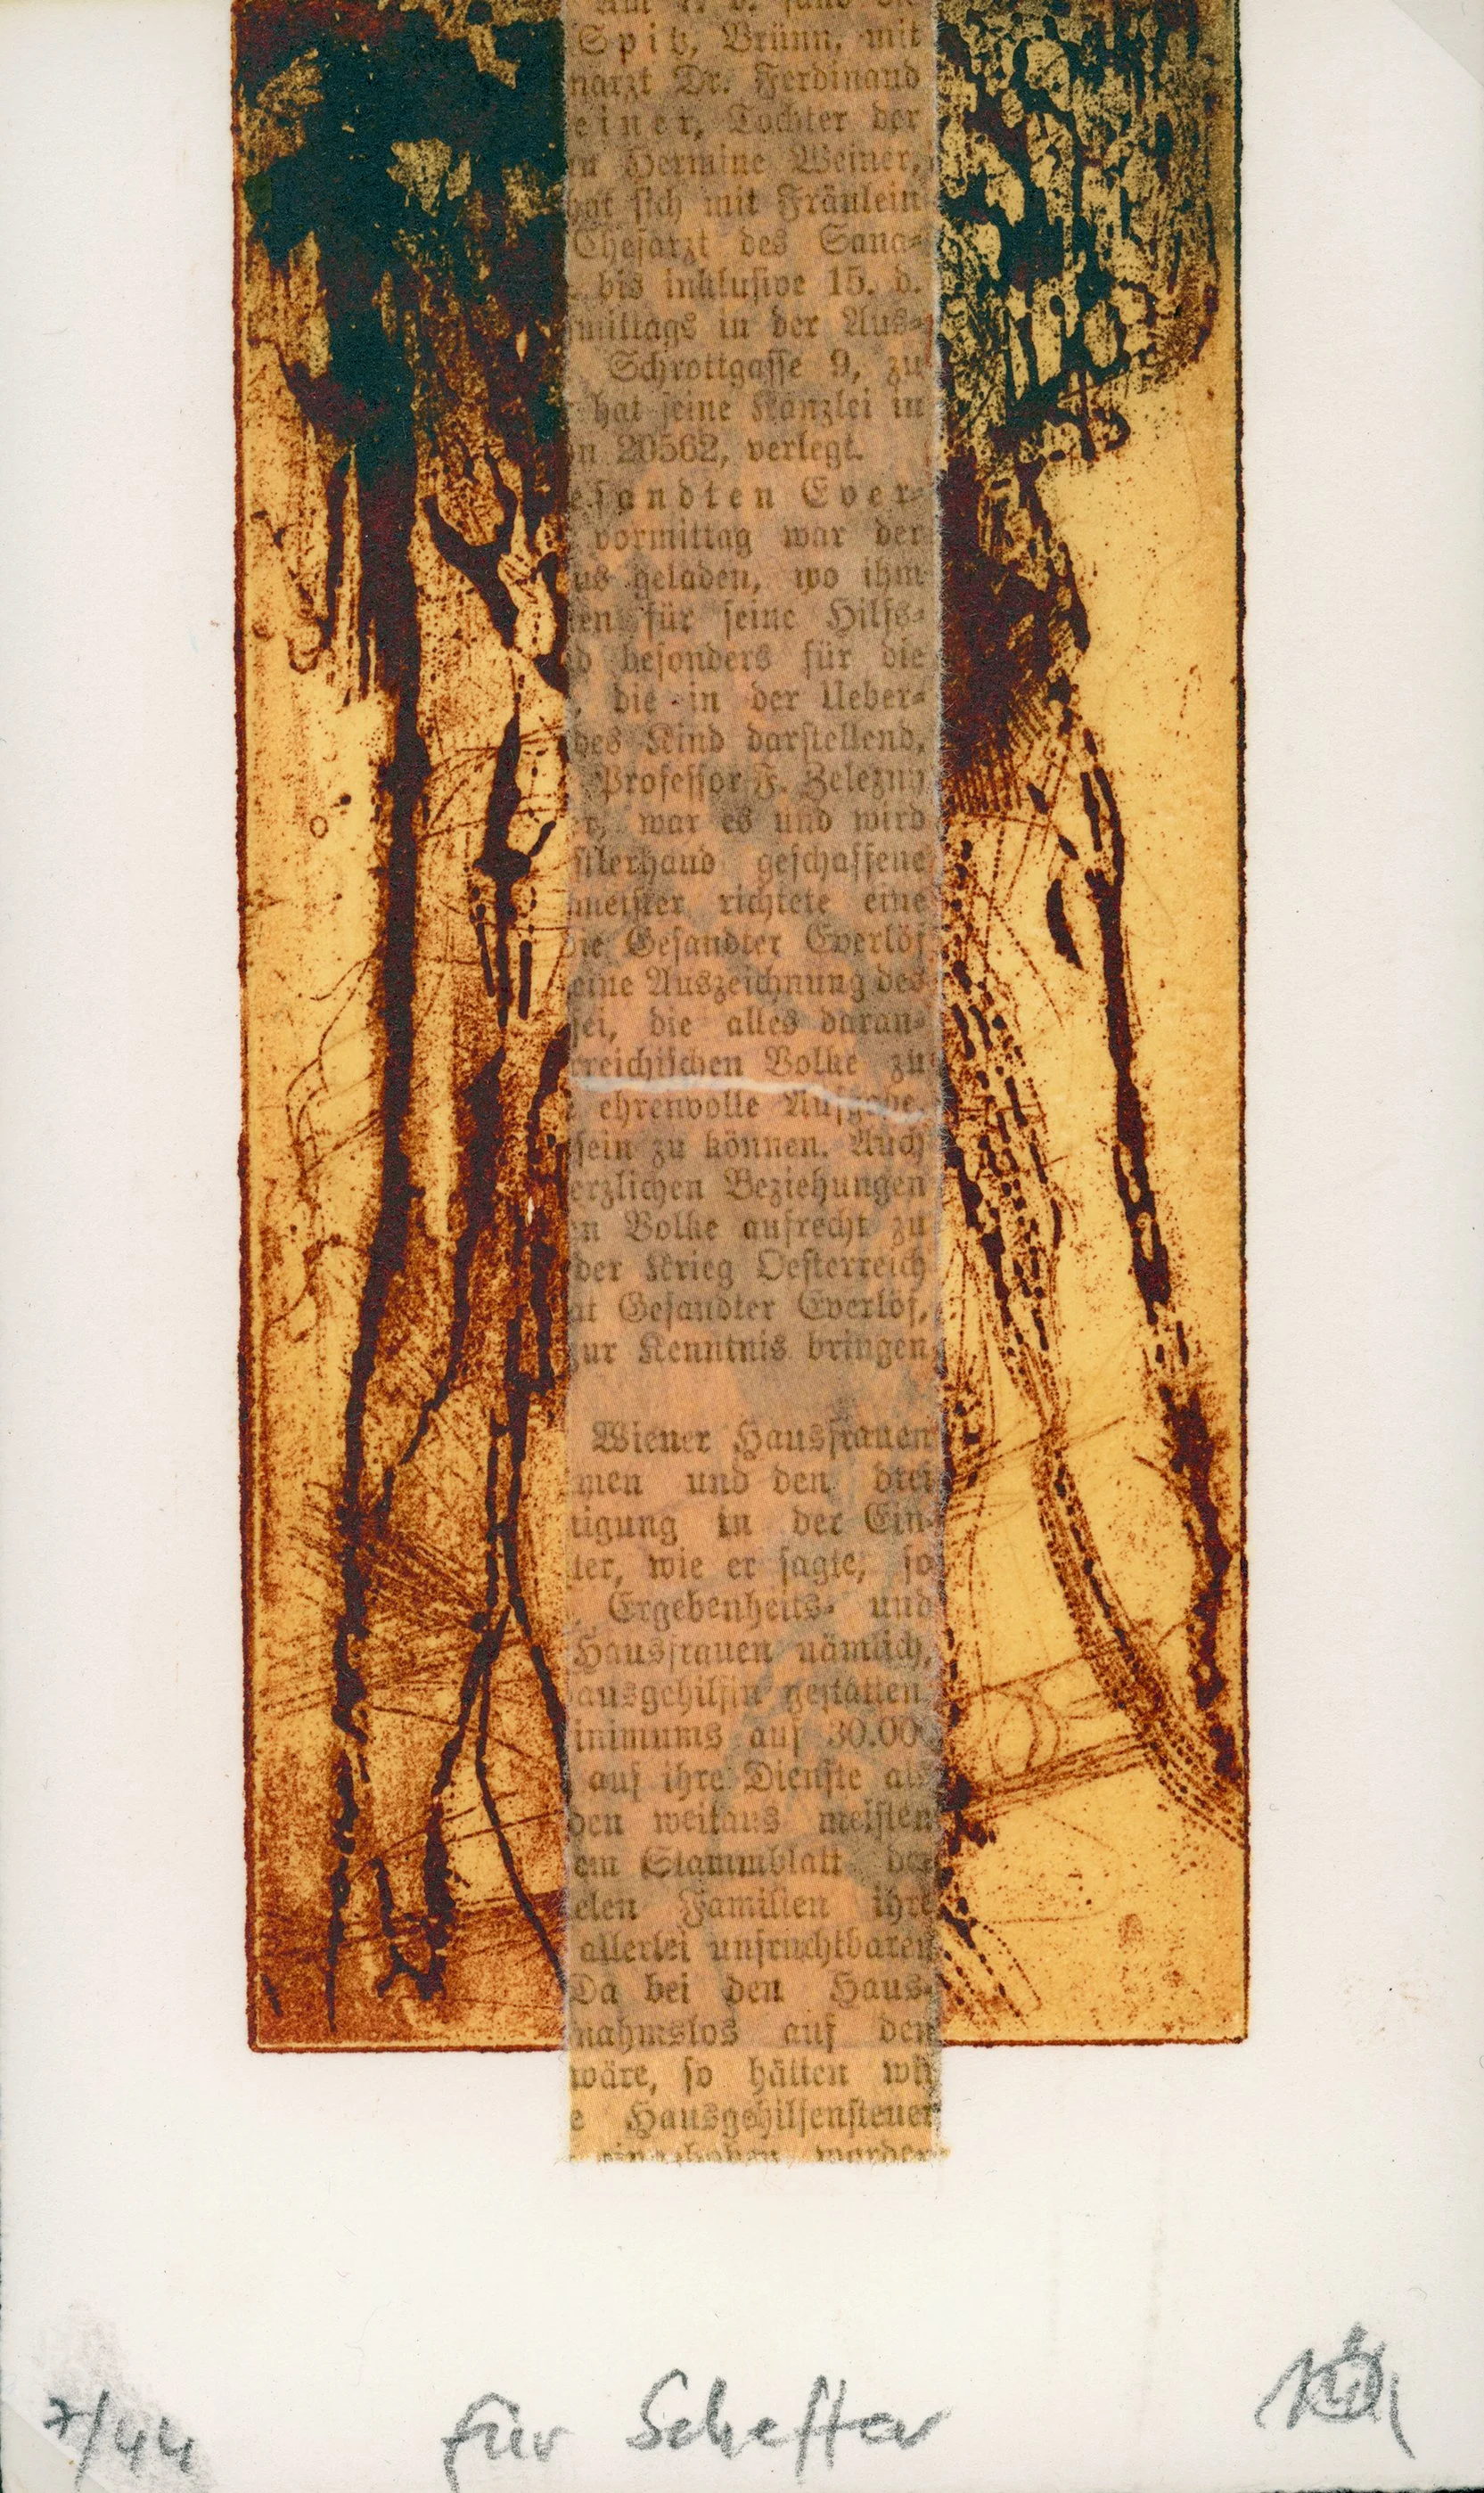 Spitz, Brünn, mit
narzt Dr. Ferdinand
einer, Tochter der
n Hermine Weiner,
hat sich mit Fräulein
Chefarzt des Sana-
bis inklusive 15. d.
mittags in der Aus-
Schrottgasse 9, zu
hat seine Kanzlei in
n 20562, verlegt.
esandten Ever-
vormittag war der
us geladen, wo ihm
en für seine Hilfs-
d besonders für die
, die in der Ueber-
des Kind darstellend,
Professor F. Zelezny
r, war es und wird
stlerhand geschaffene
meister richtete eine
die Gesandter Everlöf
eine Auszeichnung des
sei, die alles daran-
rreichischen Volke zu
ehrenvolle Aufgabe,
sein zu können. Auch
erzlichen Beziehungen
n Volke aufrecht zu
der Krieg Oesterreich
at Gesandter Everlöf,
zur Kenntnis bringen
Wiener Hausfrauen
men und den drei
tigung in der Ein-
ter, wie er sagte, so
Ergebenheits- und
Hausfrauen nämlich,
ausgehilfin gestatten,
inimums auf 30.000
auf ihre Dienste
den weitaus meisten
em Stammblatt der
elen Familien ihre
allerlei unfruchtbaren
Da bei den Haus-
nahmslos auf den
wäre, so hätten wir
e Hausgehilfensteuer
eingehoben worden
7/44 für Scheffer